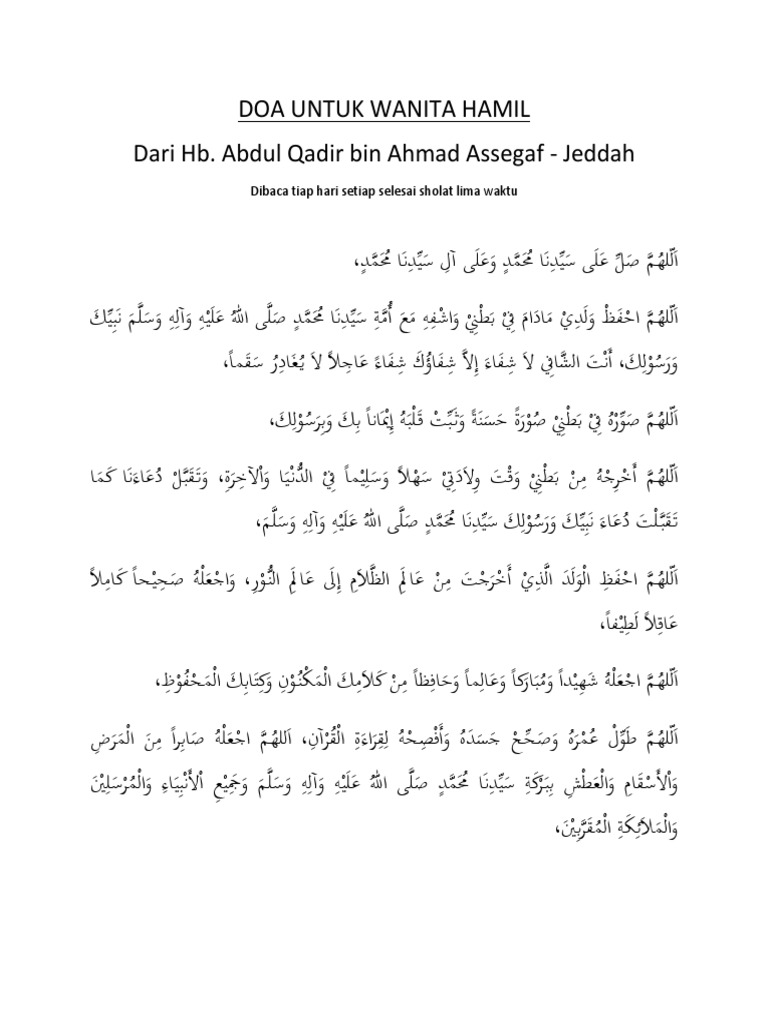 DOA UNTUK WANITA HAMIL
Dari Hb. Abdul Qadir bin Ahmad Assegaf - Jeddah
Dibaca tiap hari setiap selesai sholat lima waktu
اَللّٰهُمَّ صَلِّ عَلَى سَيِّدِنَا مُحَمَّدٍ وَعَلَى آلِ سَيِّدِنَا مُحَمَّدٍ،
اَللّٰهُمَّ احْفَظْ وَلَدِيْ مَادَامَ فِيْ بَطْنِيْ وَاشْفِهِ مَعَ أُمَّةِ سَيِّدِنَا مُحَمَّدٍ صَلَّى اللهُ عَلَيْهِ وَآلِهِ وَسَلَّمَ نَبِيِّكَ
وَرَسُوْلِكَ، أَنْتَ الشَّافِي لاَ شِفَاءَ إِلاَّ شِفَاؤُكَ شِفَاءً عَاجِلاً لاَ يُغَادِرُ سَقَماً،
اَللّٰهُمَّ صَوِّرْهُ فِيْ بَطْنِيْ صُوْرَةً حَسَنَةً وَثَبِّتْ قَلْبَهُ إِيْمَاناً بِكَ وَبِرَسُوْلِكَ،
اَللّٰهُمَّ أَخْرِجْهُ مِنْ بَطْنِيْ وَقْتَ وِلاَدَتِيْ سَهْلاً وَسَلِيْماً فِيْ الدُّنْيَا وَاْلآخِرَةِ، وَتَقَبَّلْ دُعَاءَنَا كَمَا
تَقَبَّلْتَ دُعَاءَ نَبِيِّكَ وَرَسُوْلِكَ سَيِّدِنَا مُحَمَّدٍ صَلَّى اللهُ عَلَيْهِ وَآلِهِ وَسَلَّمَ،
اَللّٰهُمَّ احْفَظِ الْوَلَدَ الَّذِيْ أَخْرَجْتَ مِنْ عَالَمِ الظَّلَامِ إِلَى عَالَمِ النُّوْرِ، وَاجْعَلْهُ صَحِيْحاً كَامِلاً
عَاقِلاً لَطِيْفاً،
اَللّٰهُمَّ اجْعَلْهُ شَهِيْداً وَمُبَارَكاً وَعَالِماً وَحَافِظاً مِنْ كَلاَمِكَ الْمَكْنُوْنِ وَكِتَابِكَ الْمَحْفُوْظِ،
اَللّٰهُمَّ طَوِّلْ عُمْرَهُ وَصَحِّحْ جَسَدَهُ وَأَفْصِحْهُ لِقِرَاءَةِ الْقُرْآنِ، اَللهُمَّ اجْعَلْهُ صَابِراً مِنَ الْمَرَضِ
وَاْلأَسْقَامِ وَالْعَطْشِ بِبَرَكَةِ سَيِّدِنَا مُحَمَّدٍ صَلَّى اللهُ عَلَيْهِ وَآلِهِ وَسَلَّمَ وَجَمِيْعِ اْلأَنْبِيَاءِ وَالْمُرْسَلِيْنَ
وَالْمَلاَئِكَةِ الْمُقَرَّبِيْنَ،